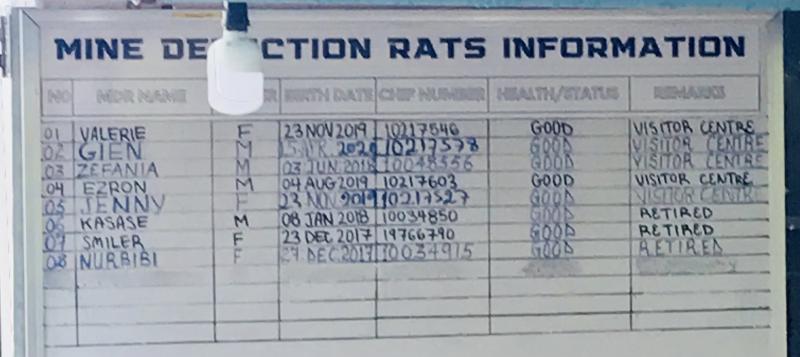 MINE DETECTION RATS INFORMATION
NO MDR NAME BIRTH DATE CHIP NUMBER HEALTH/STATUS REMARKS
01 VALERIE F 23 NOV 2019 10217546 GOOD VISITOR CENTRE
02 GIEN M 2020 10217578 GOOD VISITOR CENTRE
03 ZEFANIA M 03 JUN 2018 10048556 GOOD VISITOR CENTRE
04 EZRON M 04 AUG 2019 10217603 GOOD VISITOR CENTRE
05 JENNY F 23 NOV 2019 10217527 GOOD VISITOR CENTRE
06 KASASE M 08 JAN 2018 10034850 GOOD RETIRED
07 SMILER F 23 DEC 2017 19766790 GOOD RETIRED
08 NURBIBI F 27 DEC 2017 10034915 GOOD RETIRED